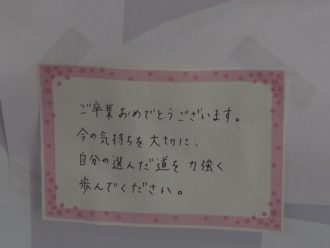 ご卒業おめでとうございます。
今の気持ちを大切に、
自分の選んだ道を力強く
歩んでください。